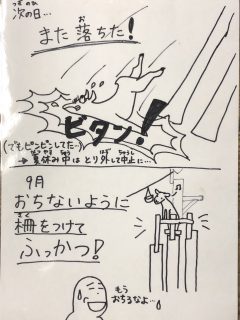 つぎ ひ
次の日…
お
また落ちた!
ビタン!
(でもピンピンしてた…)
なつやす ちゅう はず ちゅうし
→夏休み中はとり外して中止に…
9月
おちないように
さく
柵をつけて
ふっかつ!
もう
おちるなよ…